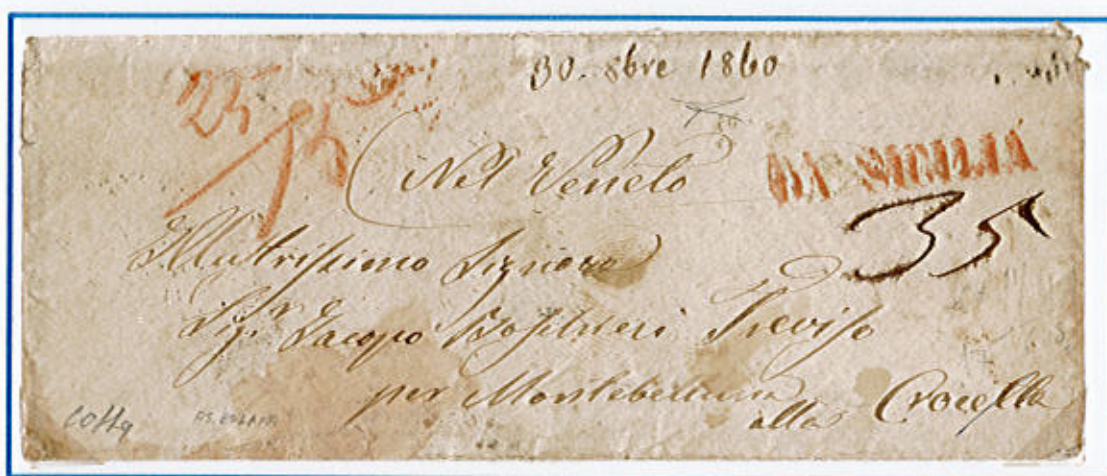 30. 8bre 1860
25/
Nel Veneto
DI SICILIA
35
Illustrissimo Signore
Sigr. Jacopo Treviso
per Montebelluna
alla Crocetta